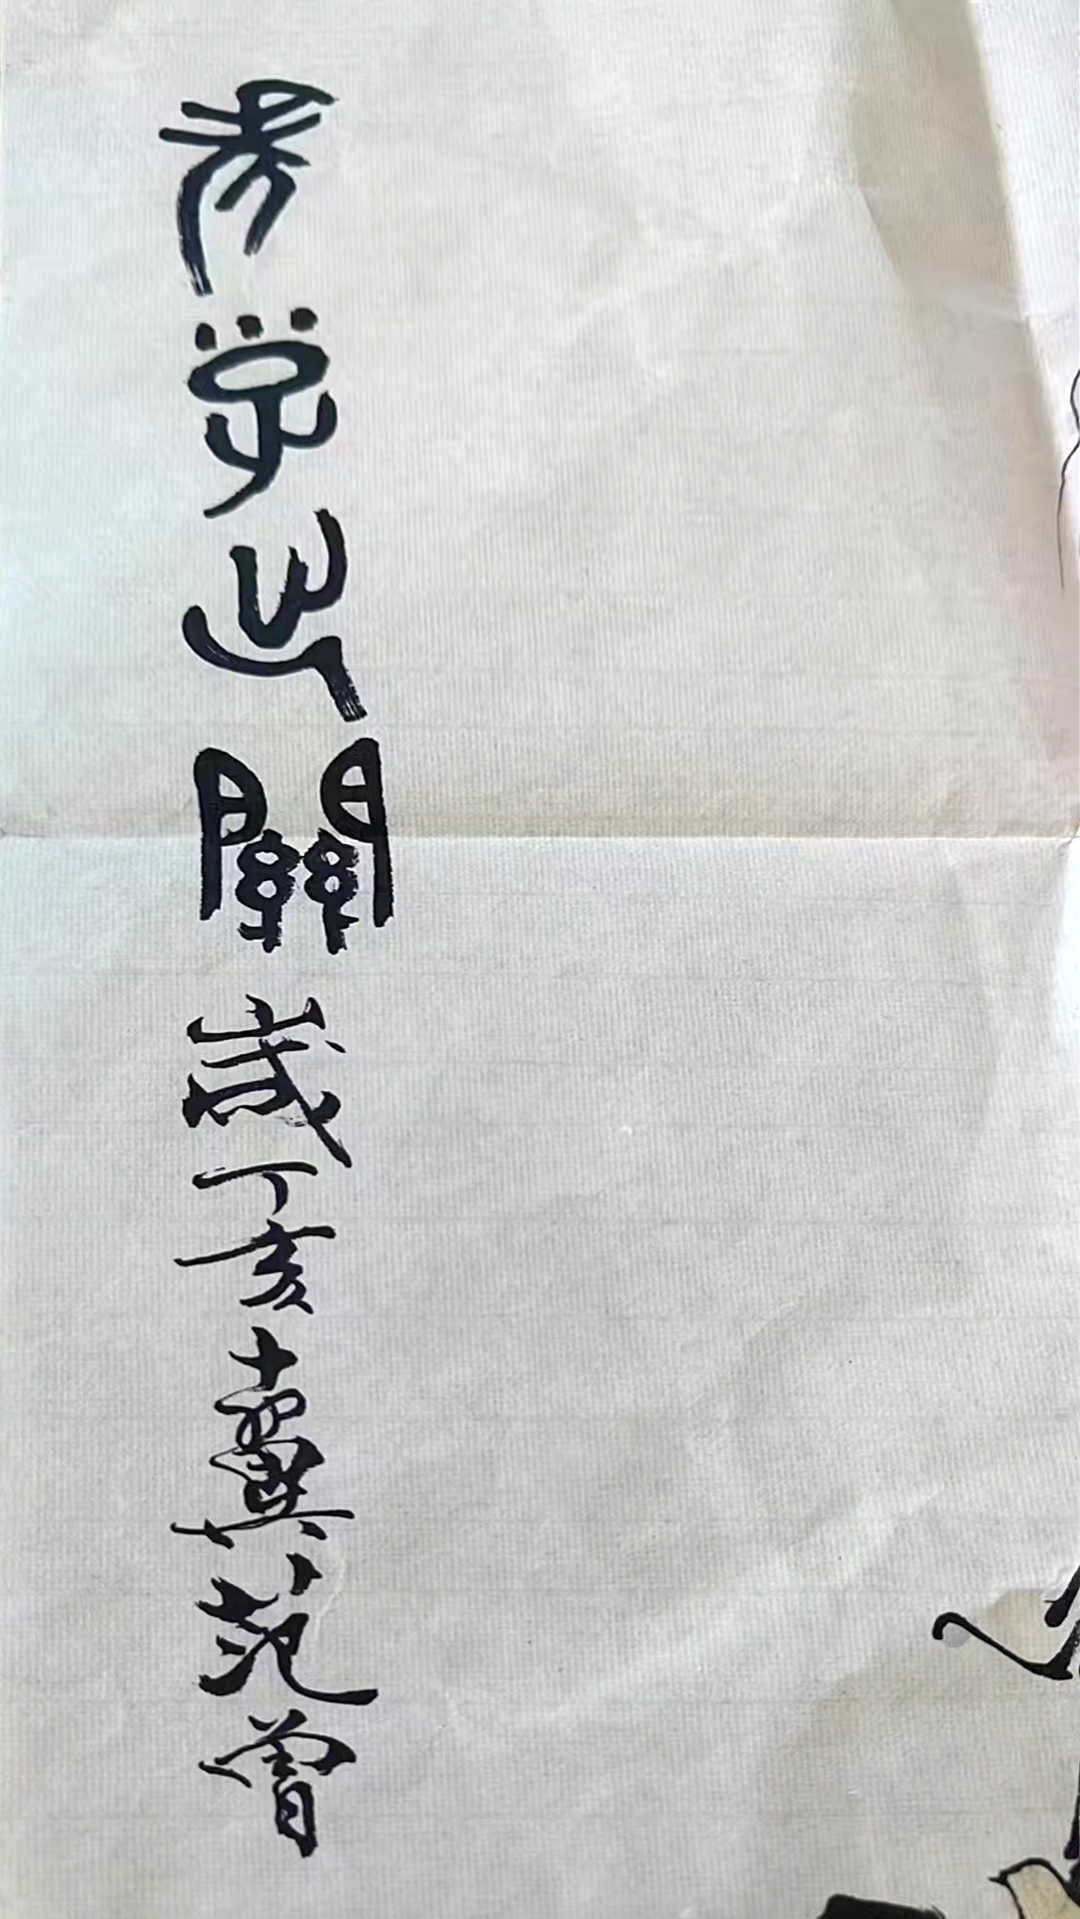 老子出關歲丁亥十翼范曾